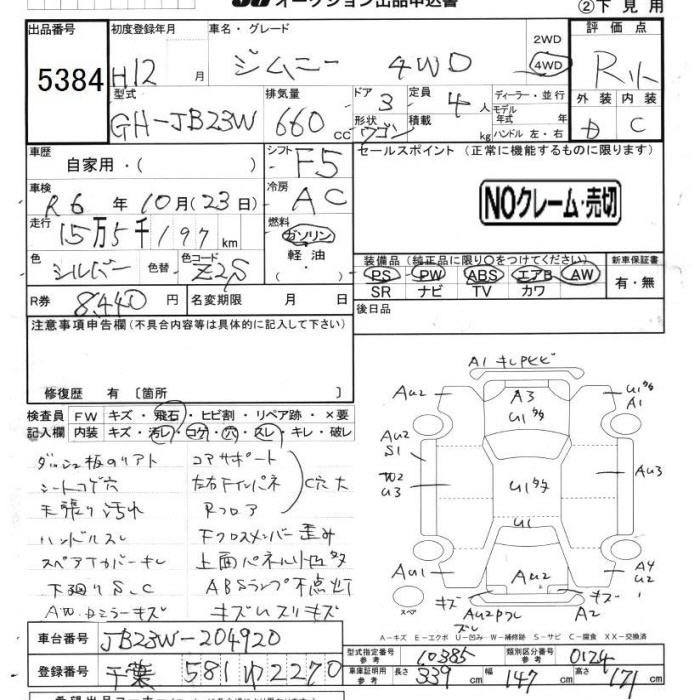 オークション出品申込書
②下見用
出品番号 5384
初度登録年月 H12 月
車名・グレード ジムニー 4WD
2WD
4WD
評価点 R小
外装 D 内装 C
型式 GH-JB23W
排気量 660 cc
ドア 3
形状 ワゴン
定員 4 人
積載 kg
ディーラー・並行
モデル年式 年
ハンドル 左・右
車歴 自家用・( )
シフト F5
セールスポイント(正常に機能するものに限ります)
車検 R6 年 10 月 (23 日)
冷房 AC
NOクレーム・売切
走行 15万5千197 km
燃料 ガソリン
軽油
色 シルバー 色替 色コード Z2S
装備品(純正品に限り○をつけてください)
PS PW ABS エアB AW
SR ナビ TV カワ
新車保証書 有・無
R券 8,440 円 名変期限 月 日
後日品
注意事項申告欄(不具合内容等は具体的に記入して下さい)
修復歴 有〔箇所 〕
検査員記入欄
FW キズ・飛石・ヒビ割・リペア跡・×要
内装 キズ・汚レ・コゲ・穴・スレ・キレ・破レ
シートコゲ穴
天張り汚れ
ハンドルスレ
スペアTカバーキレ
下廻りS、C
AW、ドミラーキズ
コアサポート
左右Fインパネ
Rフロア
C穴大
Fクロスメンバー歪み
上面パネル小凹多
ABSランプ不点灯
A1 キレ
Au2
A3
U1多
U1多
A1
Au2
S1
W2
U3
U1多
Au3
U1
Au1
Au2
A4
U2
キズ
キズ
A2
スペア
A-キズ E-エクボ U-凹み W-補修跡 S-サビ C-腐食 XX-交換済
車台番号 JB23W-204920
登録番号 千葉 581 ゆ 2270
型式指定番号 参考 10385 類別区分番号 参考 0124
車庫証明用 参考 長さ 339 cm 幅 147 cm 高さ 171 cm